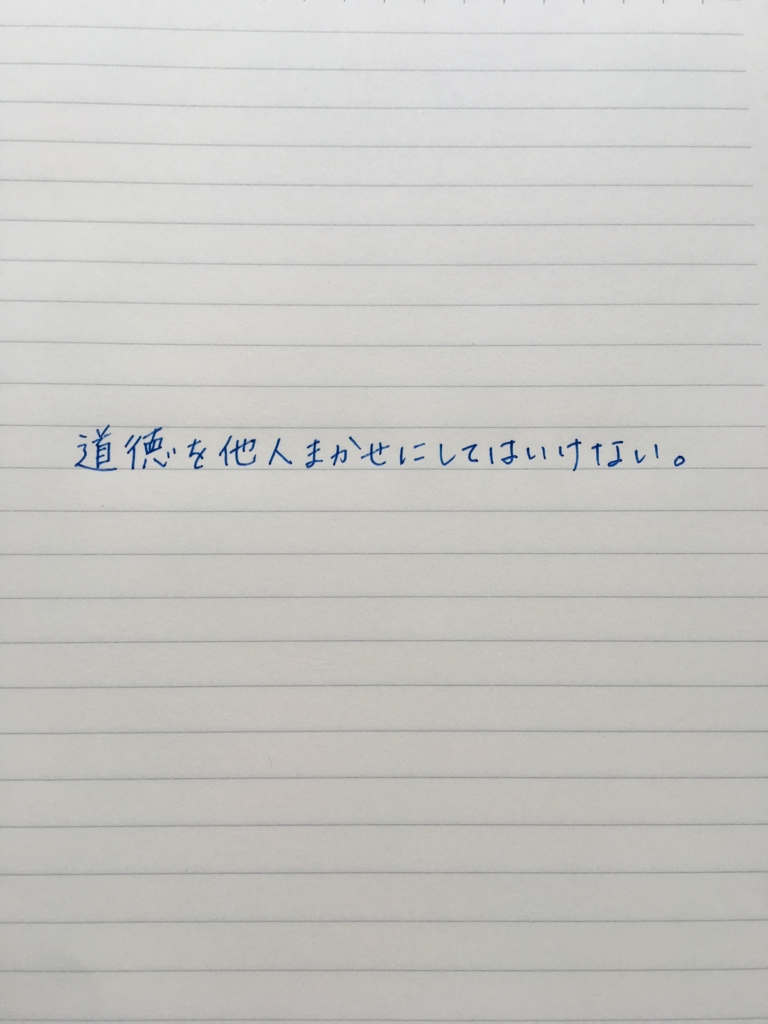 道徳を他人まかせにしてはいけない。